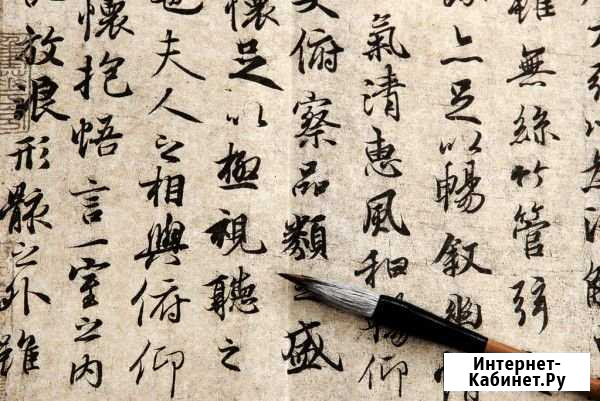 雖無絲竹管弦
亦足以暢叙幽情
氣清惠風和暢仰
大俯察品類之盛
懷足以極視聽之
也夫人之相與俯仰
懷抱悟言一室之內
放浪形骸之外雖
Интернет-
Кабинет.Ру